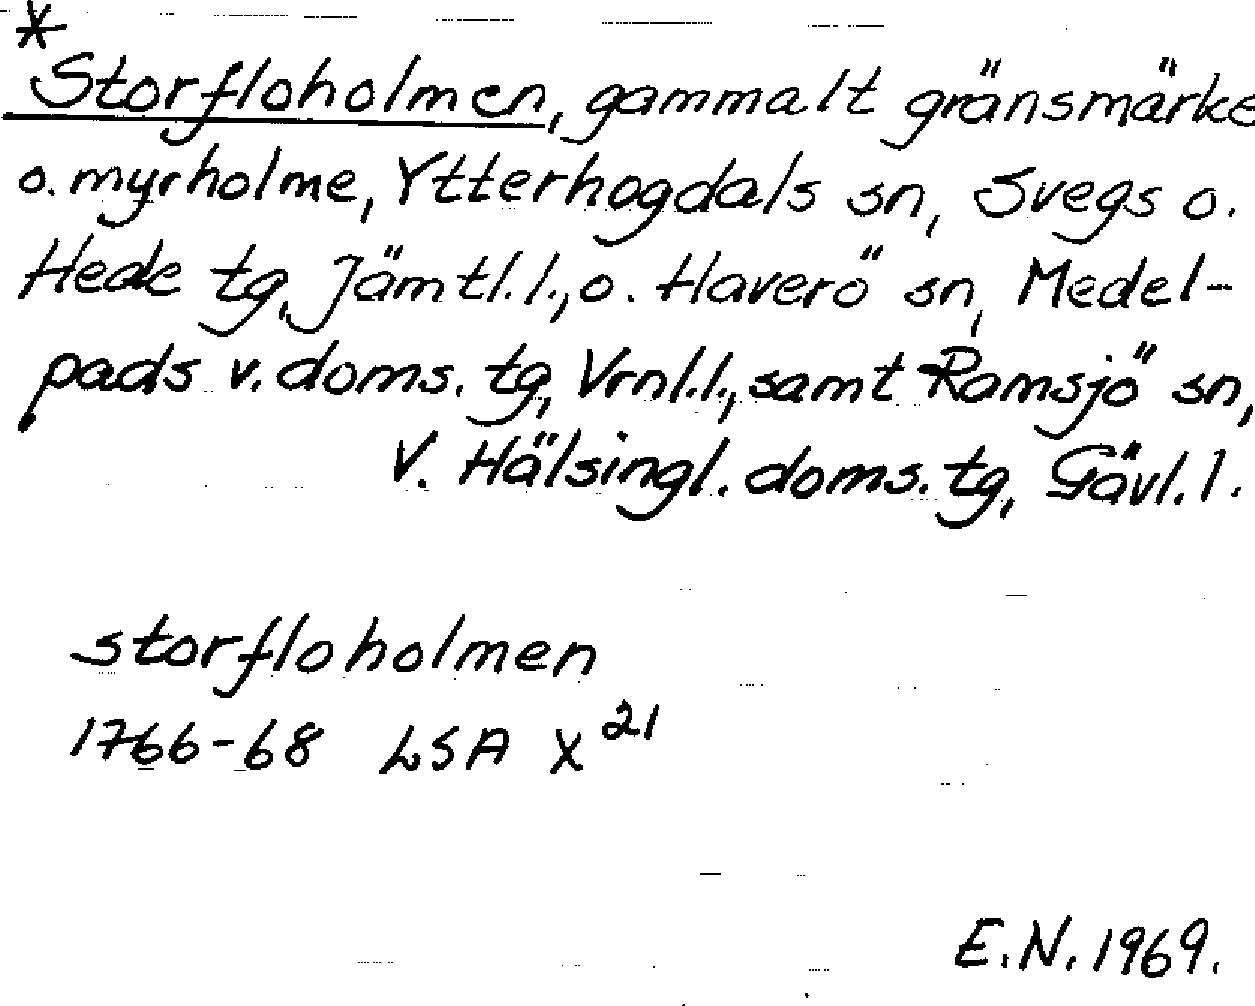 *
Storfloholmen, gammalt gränsmärke
o. myrholme, Ytterhogdals sn, Svegs o.
Hede tg, Jämtl. l., o. Haverö sn, Medel-
pads v. doms. tg, Vrnl. l., samt Ramsjö sn,
V. Hälsingl. doms. tg, Gävl. l.
storfloholmen
1766-68 LSA X²¹
E.N. 1969.